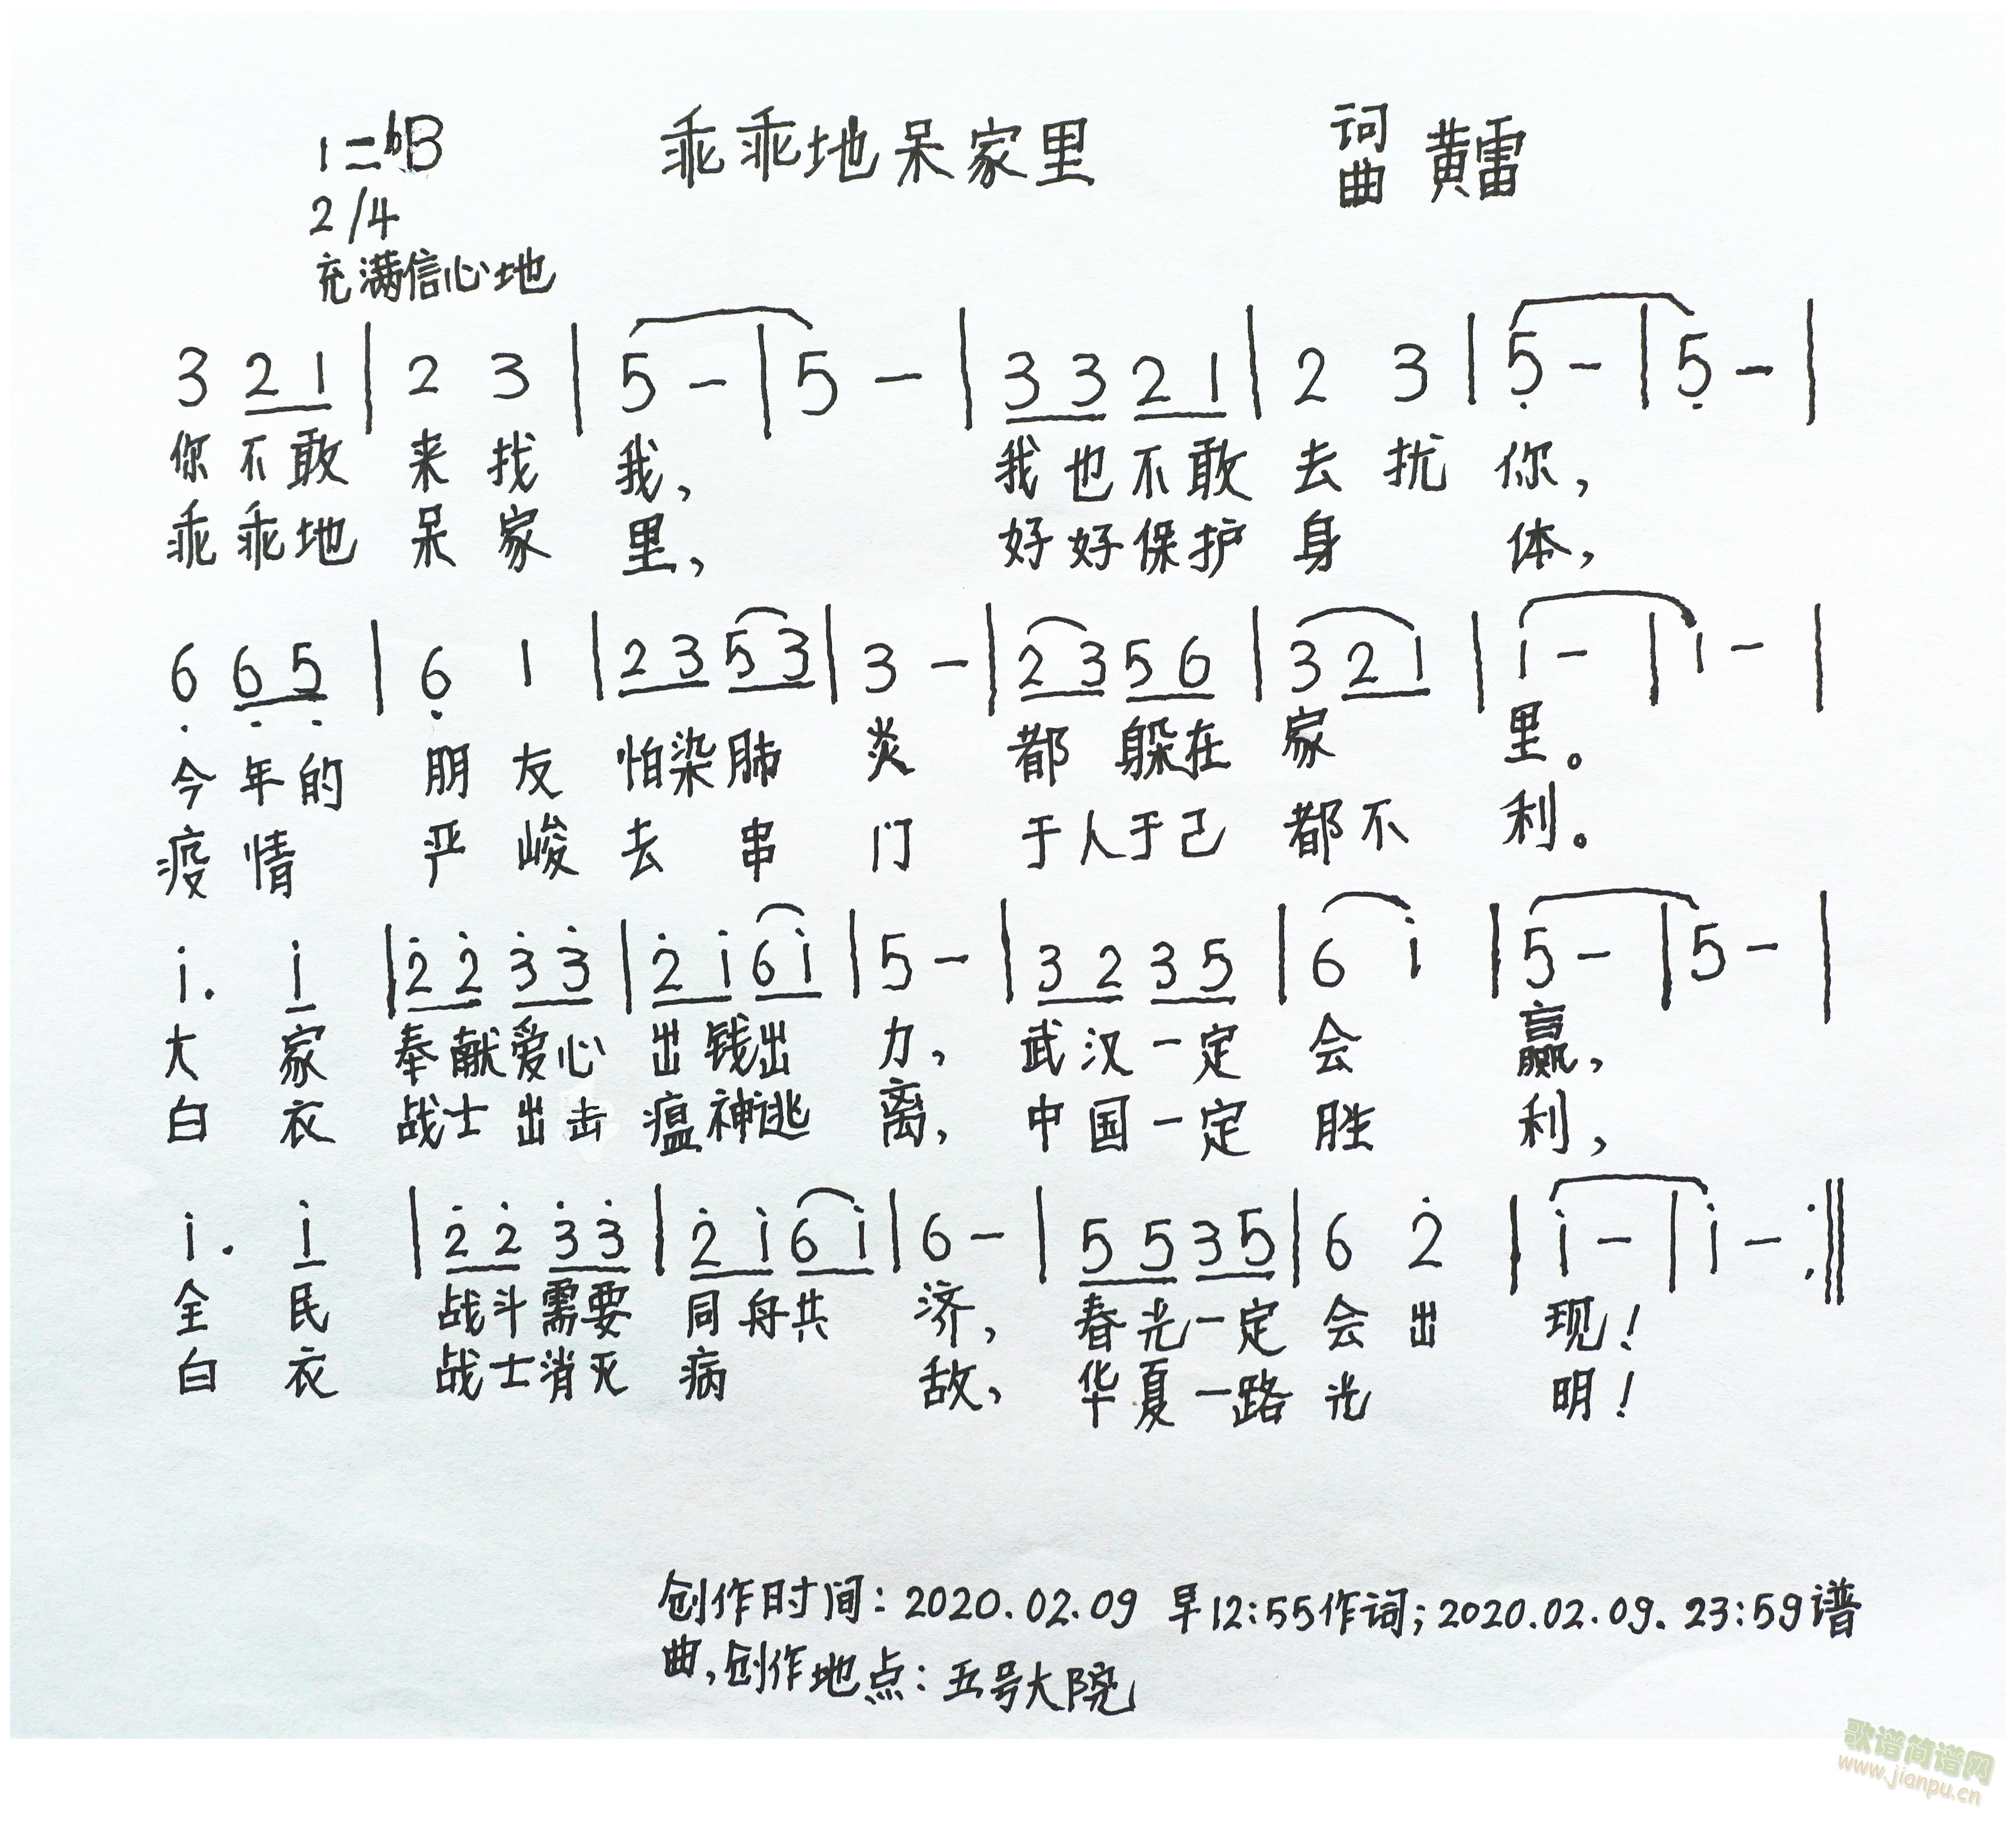 1=bB 乖乖地呆家里 词曲 黄雷
2/4
充满信心地
3 2 1 | 2 3 | 5 - | 5 - | 3 3 2 1 | 2 3 | 5̣ - | 5̣ - |
你 不敢 来 找 我, 我也不敢 去 扰 你,
乖 乖地 呆 家 里, 好好保护 身 体,
6̣ 6̣ 5̣ | 6̣ 1 | 2 3 5 3 | 3 - | 2 3 5 6 | 3 2 1 | 1 - | 1 - |
今 年的 朋 友 怕染肺 炎 都 躲在 家 里。
疫 情 严 峻 去 串 门 于人于己 都不 利。
i. i | 2̇ 2̇ 3̇ 3̇ | 2̇ i 6 i | 5 - | 3 2 3 5 | 6 i | 5 - | 5 - |
大 家 奉献爱心 出钱出 力, 武汉一定 会 赢,
白 衣 战士出击 瘟神逃 离, 中国一定 胜 利,
i. i | 2̇ 2̇ 3̇ 3̇ | 2̇ i 6 i | 6 - | 5 5 3 5 | 6 2̇ | i - | i - :||
全 民 战斗需要 同舟共 济, 春光一定 会 出 现!
白 衣 战士消灭 病 敌, 华夏一路 光 明!
创作时间: 2020.02.09 早12:55作词; 2020.02.09. 23:59谱
曲, 创作地点: 五号大院
歌谱简谱网
www.jianpu.cn